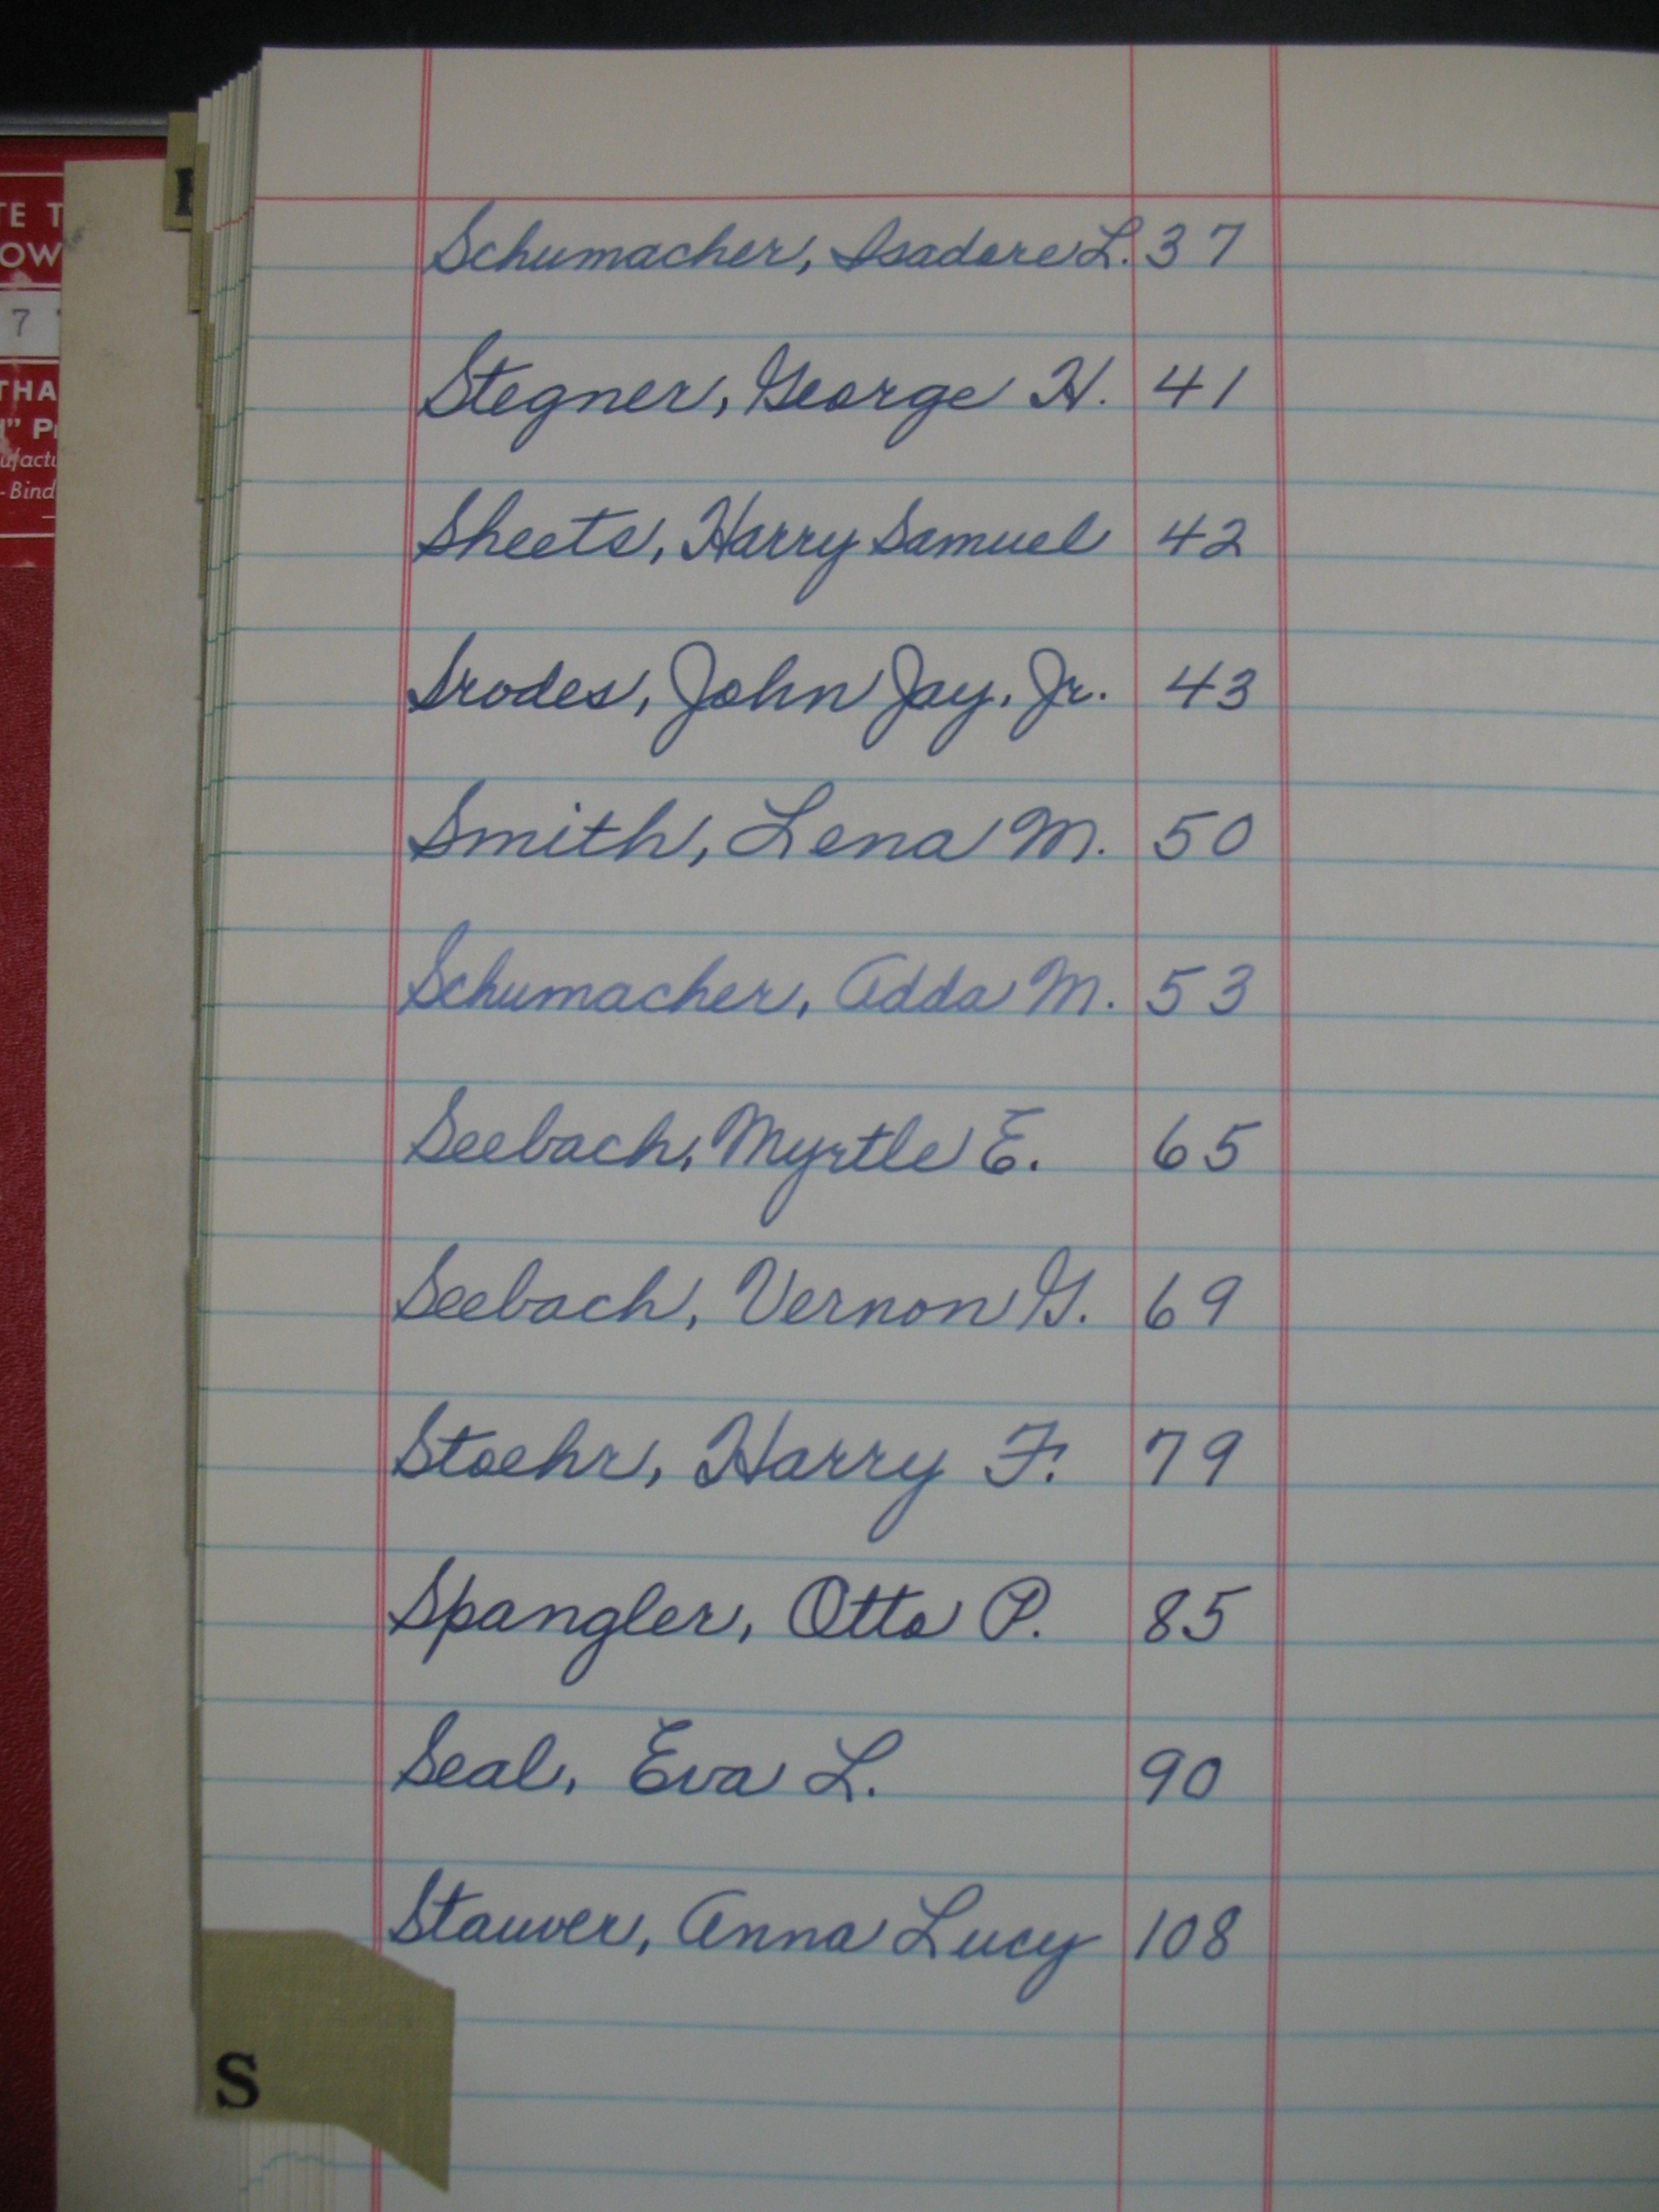 TE T
OW
7
THA
" P
ufactu
-Bind
Schumacher, Isadore L. 37
Stegner, George H. 41
Sheets, Harry Samuel 42
Srodes, John Jay, Jr. 43
Smith, Lena M. 50
Schumacher, Adda M. 53
Seebach, Myrtle E. 65
Seebach, Vernon G. 69
Stoehr, Harry F. 79
Spangler, Otto P. 85
Seal, Eva L. 90
Stauver, Anna Lucy 108
S